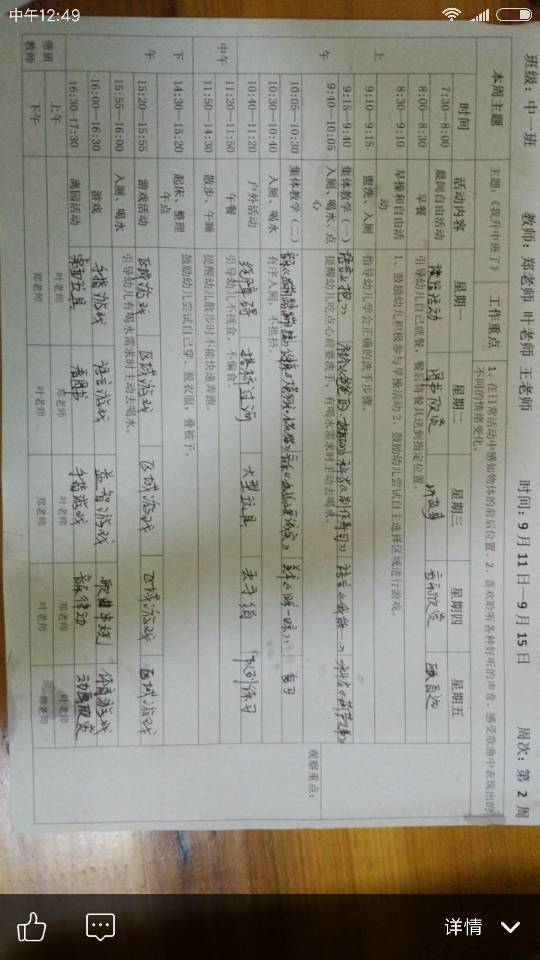 中午12:49
班级：中一班 教师：郑老师 叶老师 王老师 时间：9月11日—9月15日 周次：第2周
本周主题 主题：《我升中班了》 工作重点 1、在日常活动中感知物体的前后位置。2、喜欢聆听各种好听的声音，感受歌曲中表现出的不同的情绪变化。
时间 活动内容 星期一 星期二 星期三 星期四 星期五 观察重点：
上午
7:30-8:00 晨间自由活动 听故事 音乐欣赏
8:00-8:30 早餐 引导幼儿自己就餐，餐后将餐具送到指定位置。
8:30-9:10 早操和自由活动 1、鼓励幼儿积极参与早操活动 2、鼓励幼儿尝试自主选择区域进行游戏。
9:10-9:15 盥洗、入厕 指导幼儿学会正确的洗手步骤。
9:15-9:40 集体教学（一）
9:40-10:05 入厕、喝水、点心 提醒幼儿吃点心前要洗手，有喝水需求时主动去喝水。
10:05-10:30 集体教学（二） 复习
10:30-10:40 入厕、喝水 有序入厕，不推挤。
10:40-11:20 户外活动 绕障碍 大型玩具 队列练习
中午
11:20-11:50 午餐 引导幼儿不挑食，不偏食。
11:50-14:30 散步、午睡 提醒幼儿散步时不能快速奔跑。
下午
14:30-15:20 起床、整理 午点 鼓励幼儿尝试自己穿、脱衣服，叠被子。
15:20-15:55 游戏活动 区域游戏 区域游戏 区域游戏 区域游戏 区域游戏
15:55-16:00 入厕、喝水 引导幼儿有喝水需求时主动去喝水。
16:00-16:30 游戏 手指游戏 语言游戏 益智游戏 体育游戏
16:30-17:30 离园活动 桌面玩具 看图书 手指游戏 音乐律动 动画欣赏
带班教师 上午 叶老师 郑老师 叶老师 郑老师 叶老师
下午 郑老师 叶老师 郑老师 叶老师 郑老师
详情